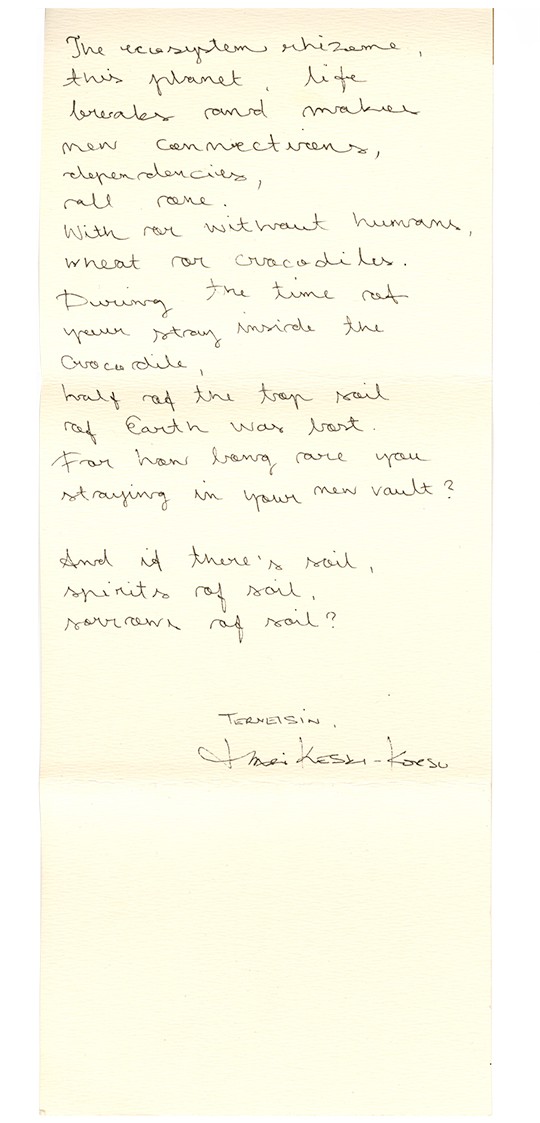 The ecosystem rhizome,
this planet, life
breaks and makes
new connections,
dependencies,
all one.
With or without humans,
wheat or crocodiles.
During the time of
your stay inside the
Crocodile,
half of the top soil
of Earth was lost.
For how long are you
staying in your new vault?
And if there's soil,
spirits of soil,
sorrows of soil?
TERVEISIN,
Mari KESKI-KORSU